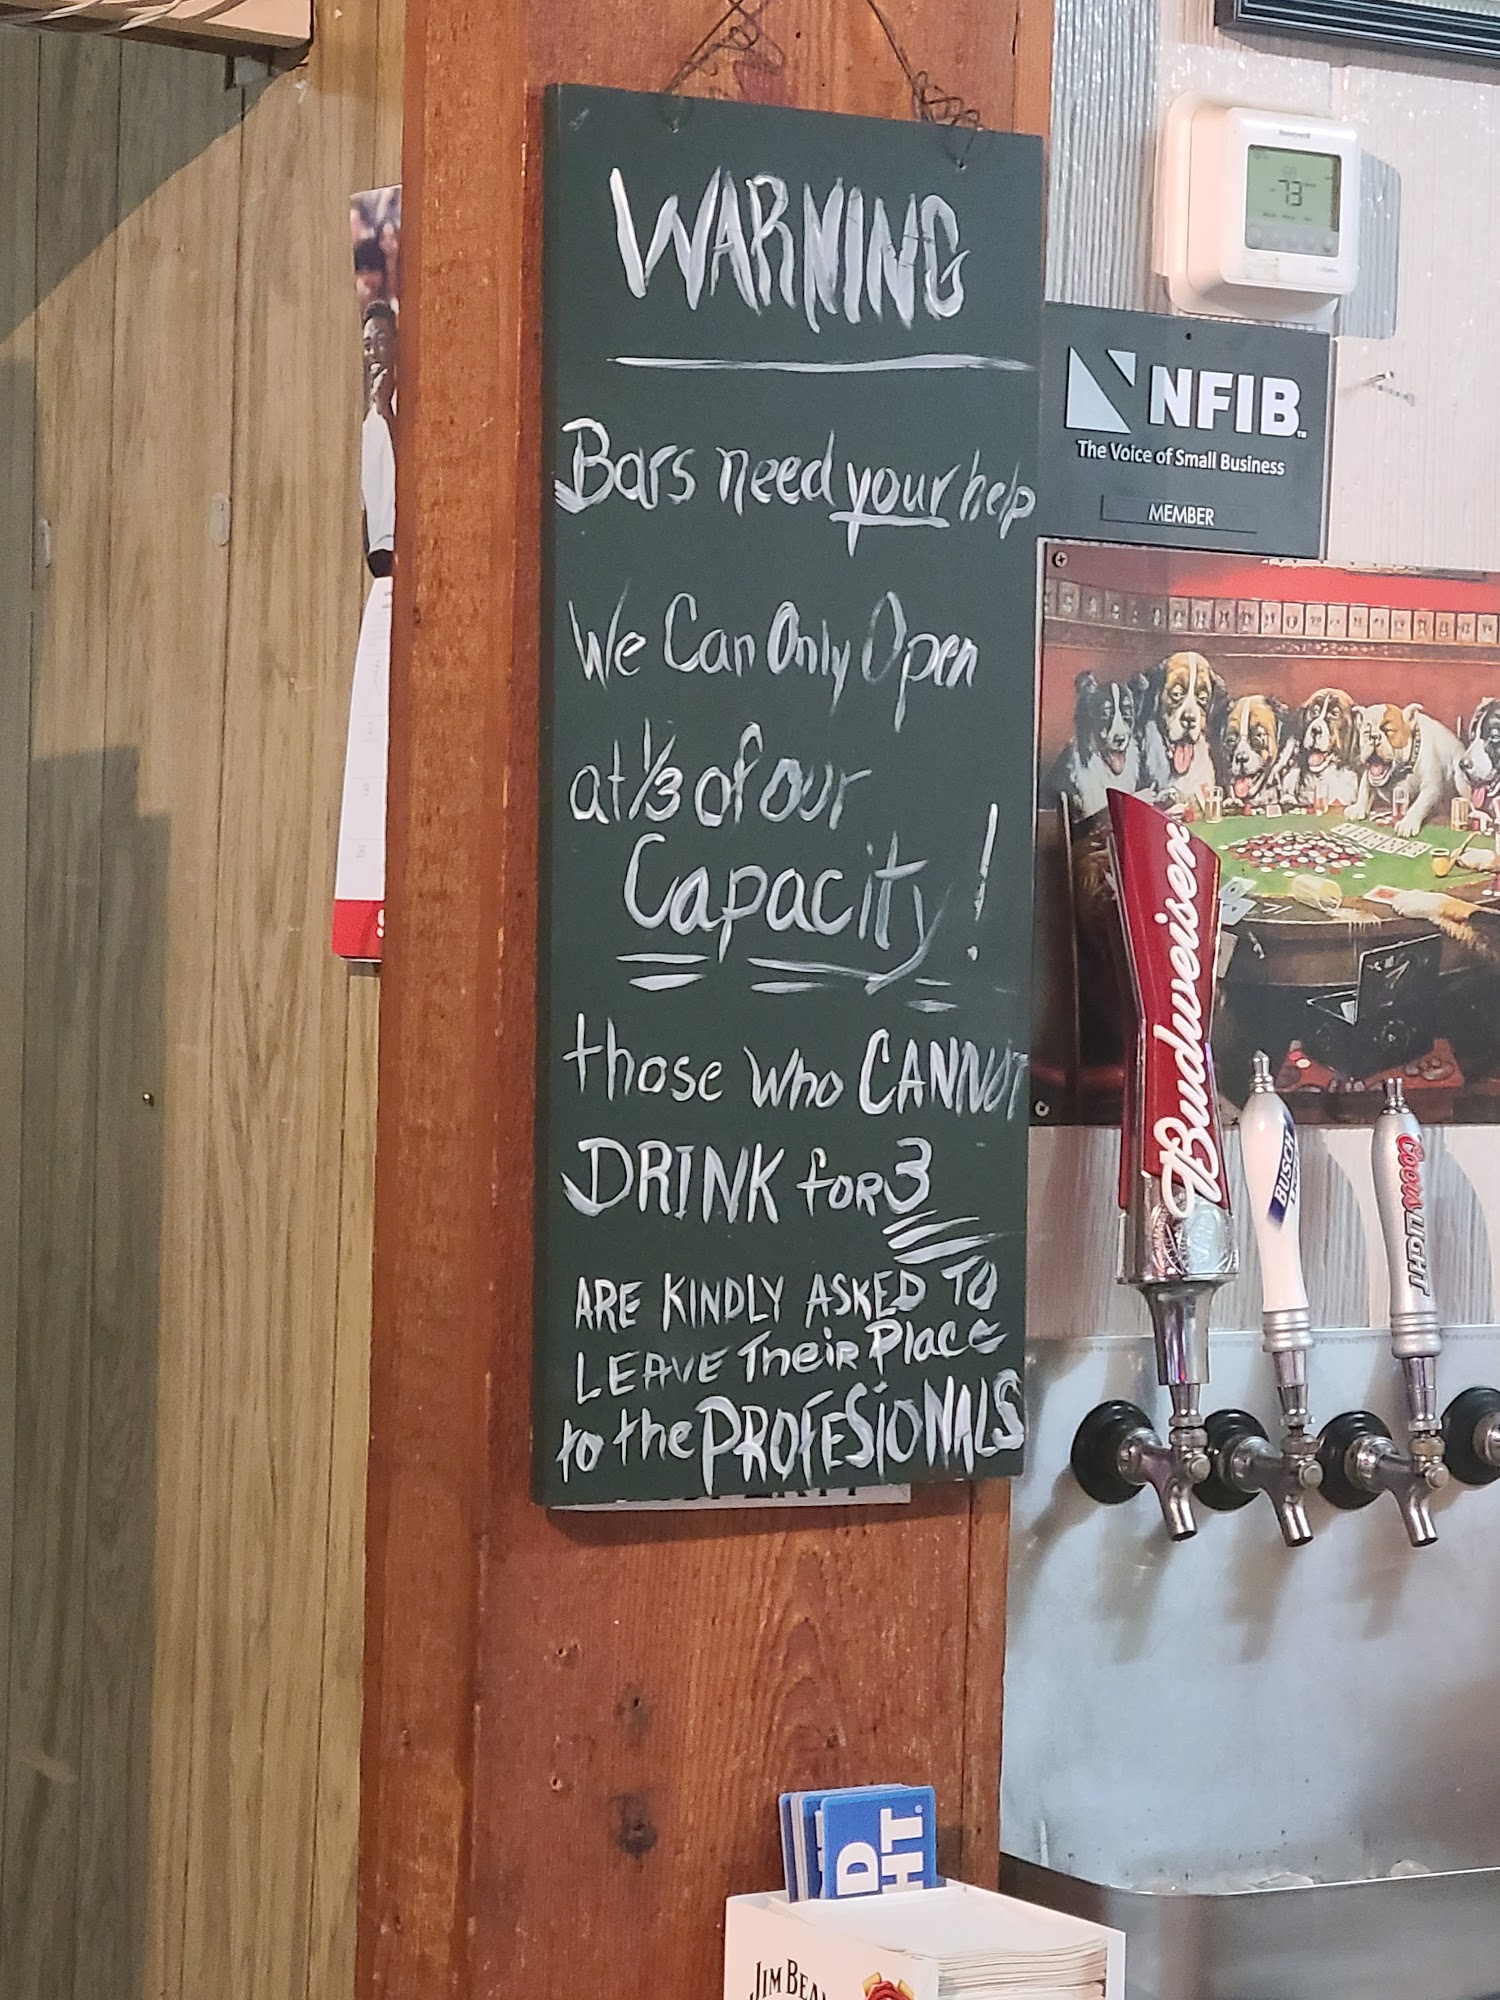 WARNING
Bars need your help
We Can Only Open
at 1/3 of our
Capacity!
those who CANNOT
DRINK for 3
ARE KINDLY ASKED TO
LEAVE Their Place
to the PROFESIONALS
Honeywell
73
NFIB
The Voice of Small Business
MEMBER
Budweiser
BUSCH
Coors LIGHT
JIM BEA